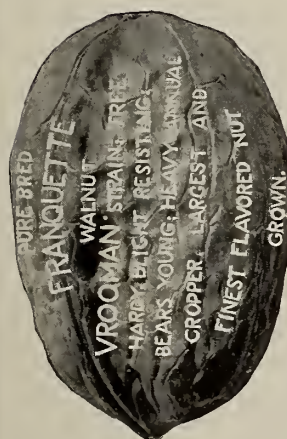 PURE BRED
FRANQUETTE
WALNUT
VROOMAN STRAIN. TREE
HARDY. BLIGHT RESISTING;
BEARS YOUNG; HEAVY ANNUAL
CROPPER. LARGEST AND
FINEST FLAVORED NUT
GROWN.